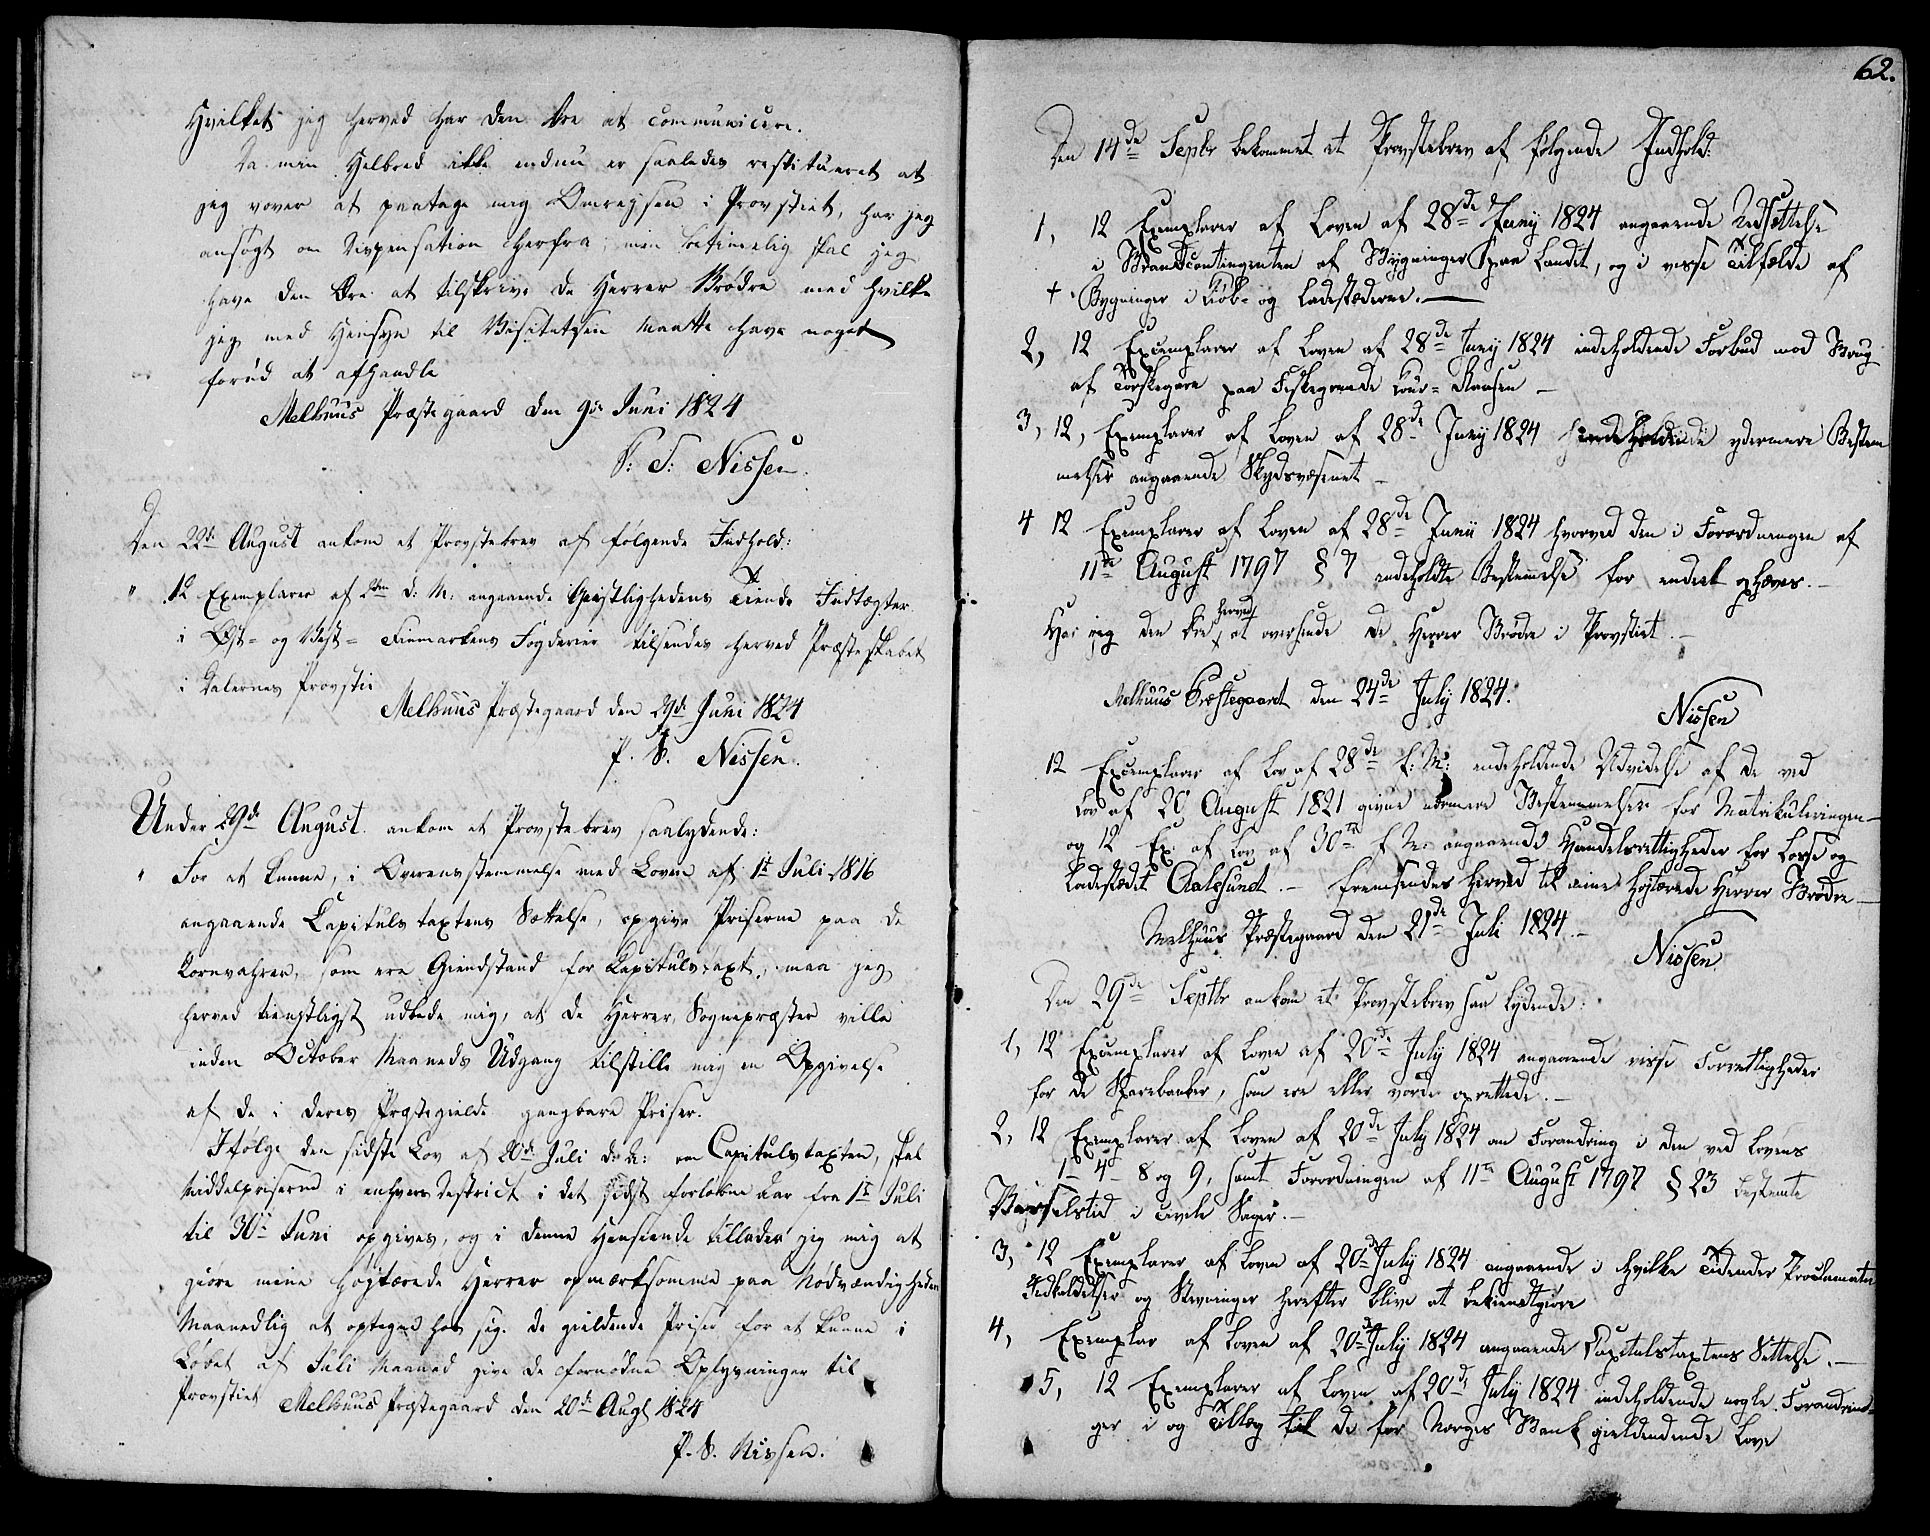 Hvilket jeg herved har den Ære at communicere.
Da min Helbred ikke endnu er saaledes restitueret at
jeg vover at paatage mig Omreysen i Provstiet, har jeg
ansøgt om Dispensation herfra; men betimelig skal jeg
have den Ære at tilskrive de Herrer Brødre med hvilke
jeg med Hensyn til Visitatsen maatte have noget
forud at afhandle
Melhuus Præstegaard den 9de Juni 1824
P: S: Nissen.
Den 22de August ankom et Provstebrev af følgende Indhold:
" 12 Exemplarer af d: M: angaaende Geistlighedens Tiende Indtægter
i Øst- og Vest- Finmarkens Fogderier tilsendes herved Præsteskabet
i Dalernes Provsti
Melhuus Præstegaard den 29de Juni 1824
P. S. Nissen.
Under 29de August. ankom et Provstebrev saalydende:
" For at kunne, i Overensstemmelse med Loven af 1st Juli 1816
angaaende Capitulstaxtens Sættelse, opgive Priserne paa de
Kornvahrer, som ere Giendstand for Capitulstaxt, maa jeg
herved tienstligst udbede mig, at de Herrer Sognepræster ville
inden October Maaneds Udgang tilstille mig en Opgivelse
af de i deres Præstegield gangbare Priser.
Ifølge den sidste Lov af 20de Juli d: A: om Capitulstaxten, skal
Middelpriserne i enhvers District i det sidst forløbne Aar fra 1st Juli
til 30te Juni opgives, og i denne Henseende tillader jeg mig at
giøre mine høitærede Herrer opmærksomme paa Nødvendigheden
Maanedlig at optegne hos sig de gieldende Priser for at kunne i
Løbet af Juli Maaned give de fornødne Oplysninger til
Provstiet Melhuus Præstegaard den 20de Augt 1824
P. S. Nissen.
62.
Den 14de Septbr bekommet et Provstebrev af følgende Indhold:
1, 12 Exemplarer af Loven af 28de Juny 1824 angaaende Nedsættelse
i Brandcontingenten af Bygninger paa Landet, og i visse Tilfælde af
+ Bygninger i Kiøb- og Ladestæderne.
2, 12 Exemplarer af Loven af 28de Juny 1824 indeholdende Forbud mod Brug
af Torskegarn paa Fiskegrunde
3, 12, Exemplarer af Loven af 28de Juny 1824 indeholdende ydermere Bestem
melser angaaende Skydsvæsenet
4 12 Exemplarer af Loven af 28de Junii 1824 hvorved den i Forordningen af
11te August 1797 § 7 indeholdte Bestemmelse for endeel ophæves.
Har jeg den Ære herved at oversende de Herrer Brødre i Provstiet.
Melhuus Præstegaard den 24de July 1824.
Nissen
12 Exemplarer af Lov af 28de f: M: indeholdende Udvidelse af de ved
Lov af 20 August 1821 givne nærmere Bestemmelser for Matrikuleringen
og 12 Ex. af Lov af 30te f. M. angaaende Handelsrettigheder for Losse og
Ladestædet Aalesund. – fremsendes herved til mine Høitærede Herrer Brødre
Melhuus Præstegaard den 21de Juli 1824
Nissen
Den 29de Septbr ankom et Provstebrev saa lydende:
1, 12 Exemplarer af Loven af 20de July 1824 angaaende visse Forrettigheder
for de Sparebanker, som ere eller vorde oprettede.
2, 12 Exemplarer af Loven af 20de July 1824 om Forandring i den ved Lovens
1– 4– 8 og 9, samt Forordningen af 11te August 1797 § 23 bestemte
Varselstid i Civile Sager.
3, 12 Exemplarer af Loven af 20de July 1824 angaaende i hvilke Tidender Proclamata
Indkaldelser og Stevninger herefter blive at bekiendtgiøre
4, Exemplar af Loven af 20de July 1824 angaaende Capitulstaxtens Settelse.
5, 12 Exemplarer af Loven af 20de July 1824 indeholdende nogle Forandrin-
ger i og Tillæg til de for Norges Bank gieldendende Love